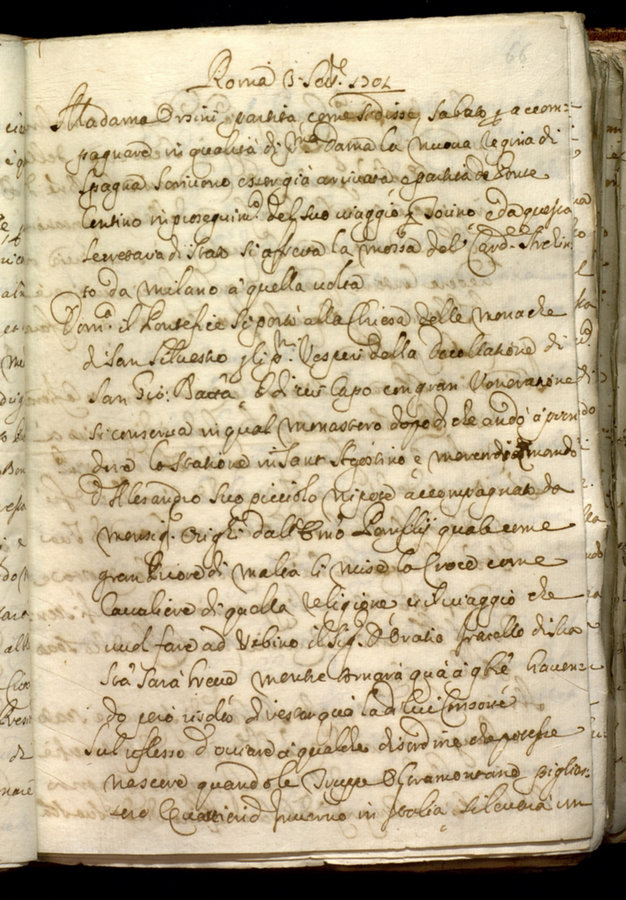 66
Roma 3 Sett.e 1701
Madama Orsini partita come si disse, Sabato p accom-
pagnare in qualità di Madama la nuova Regina di
Spagna scrivono esser già arrivata e partita da Ponte
Centino in proseguim.to del suo viaggio p Torino e da questa
Segretaria di Stato si affretta la mossa del Card.le
to da Milano à quella volta
Dom.ca il Pontefice si portò alla Chiesa delle Monache
di San Silvestro p li p.mi Vesperi della Decollatione di
San Gio: Batta il di cui Capo con gran Veneratione
si conserva in quel Monastero dopo di che andò à pren
dere la statione in Sant Agostino e mercordi mandò
D Alesandro suo picciolo nipote accompagnato da
monsig. Orighi dall Em.o Panfilij quale come
gran Priore di Malta li mise la Croce come
Cavaliere di quella Religione il viaggio che
vuol fare ad Urbino il Sig. D Oratio fratello di Sua
Stà sarà breve mentre tornarà quà à haven-
do però di restar quà la di lui Consorte
Sul riflesso d ovviare à qualche disordine che potesse
nascere quando le Truppe Oltramontane piglias-
sero Quartieri d Inverno in Italia si leverà un